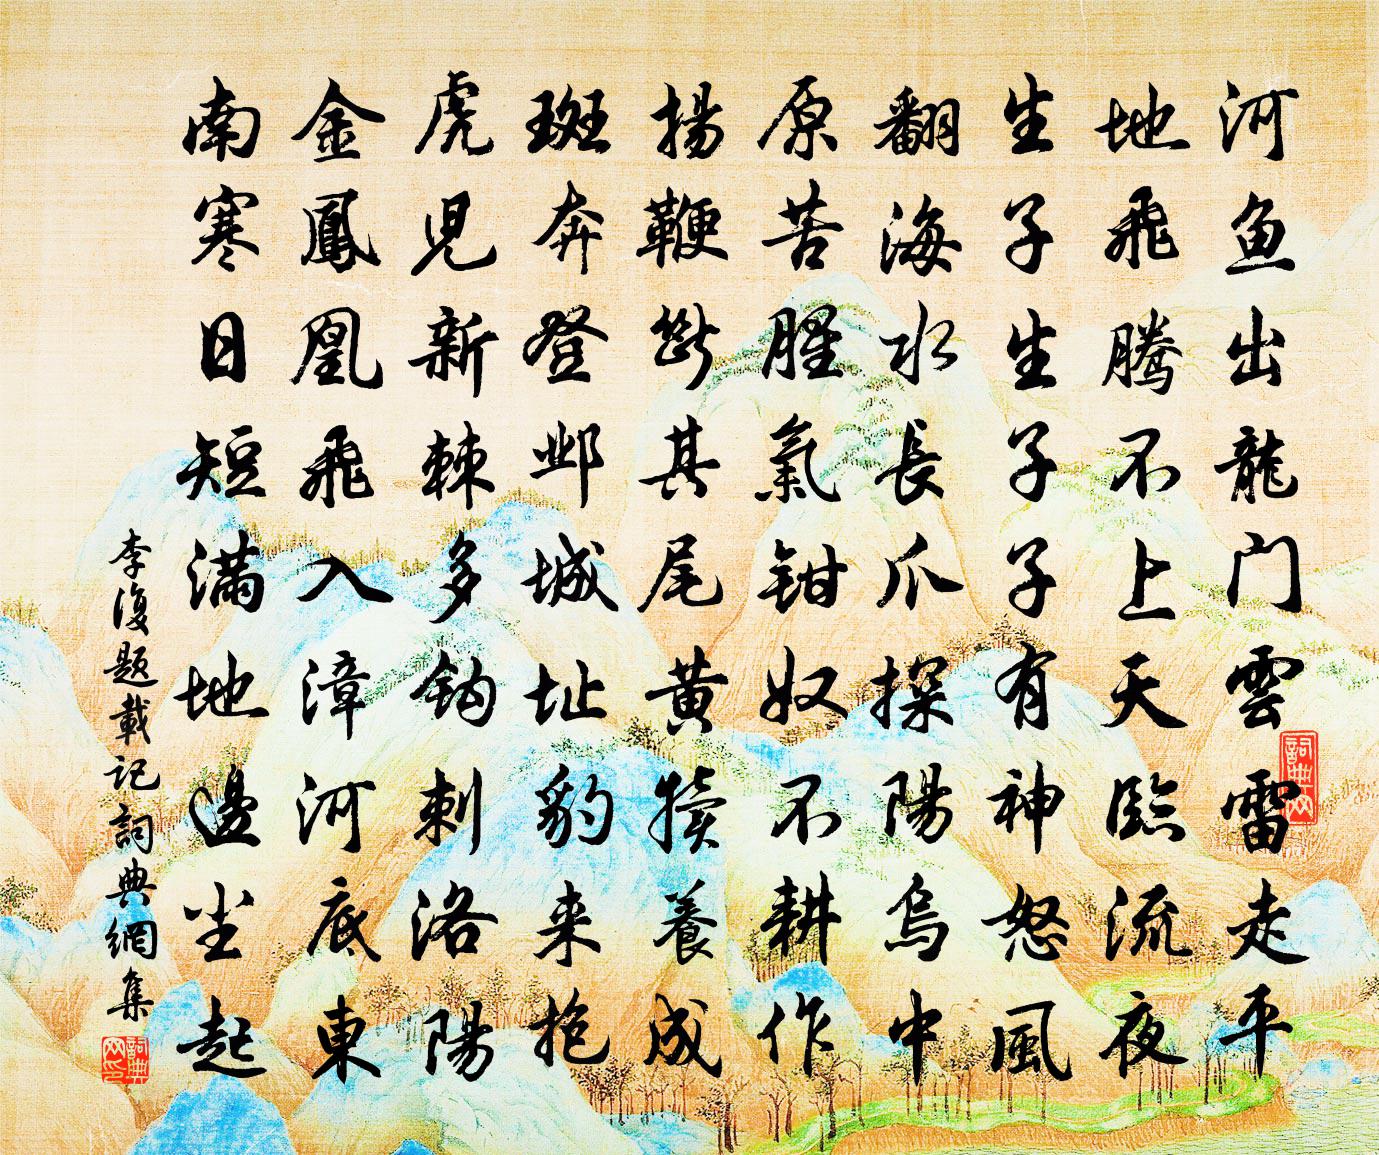 河鱼出龍门雲雷走平
地飛騰不上天臨流夜
生子生子子有神怒風
翻海水長爪探陽烏中
原苦腥氣鉗奴不耕作
揚鞭斷其尾黄犢養成
斑奔登邺城址豹来抱
虎児新棘多鈎刺洛陽
金鳳凰飛入漳河底東
南寒日短满地邊尘起
李復题載记詞典網集
詞典网
詞典网印